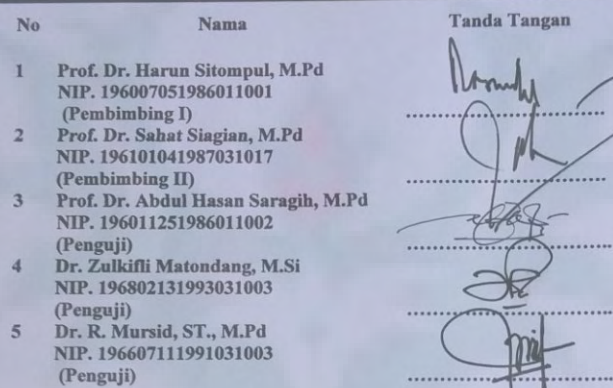 No Nama Tanda Tangan
1 Prof. Dr. Harun Sitompul, M.Pd
NIP. 196007051986011001
(Pembimbing I)
2 Prof. Dr. Sahat Siagian, M.Pd
NIP. 196101041987031017
(Pembimbing II)
3 Prof. Dr. Abdul Hasan Saragih, M.Pd
NIP. 196011251986011002
(Penguji)
4 Dr. Zulkifli Matondang, M.Si
NIP. 196802131993031003
(Penguji)
5 Dr. R. Mursid, ST., M.Pd
NIP. 196607111991031003
(Penguji)